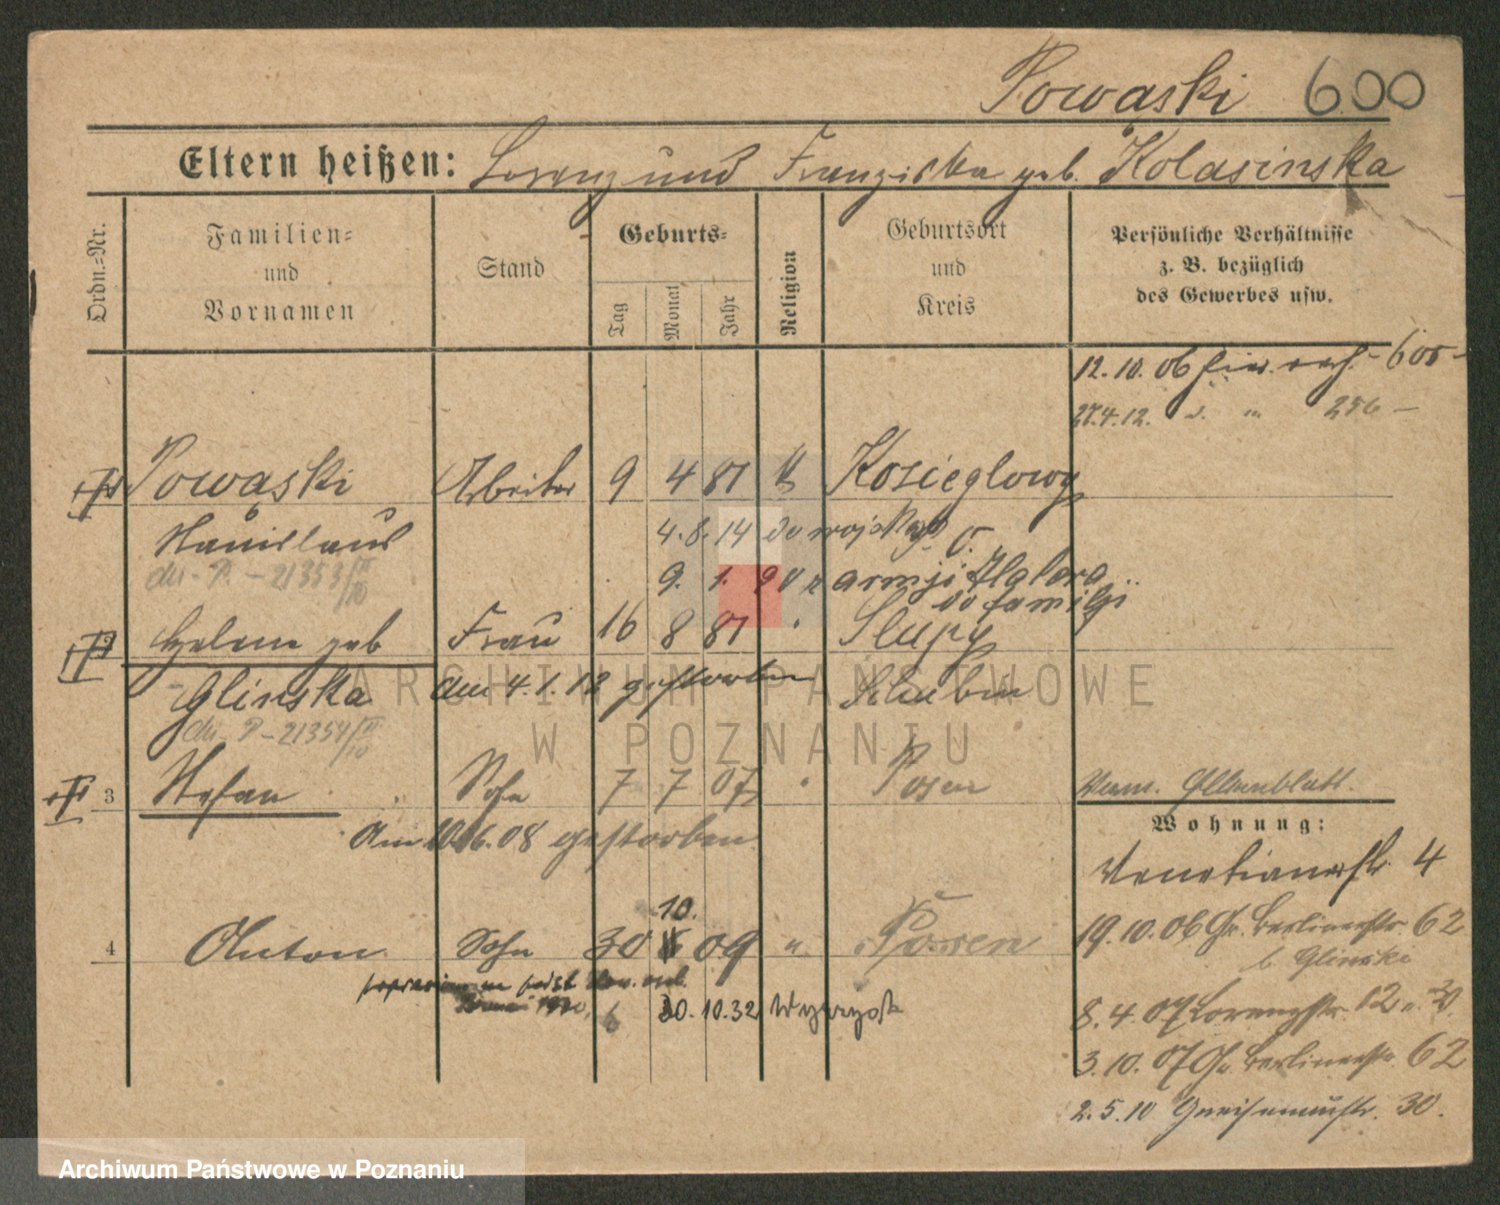 Powąski 600
Eltern heißen: Lorenz und Franziska geb. Kolasinska
Ordn.-Nr.
Familien- und Vornamen
Stand
Geburts-
Tag Monat Jahr
Religion
Geburtsort und Kreis
Persönliche Verhältnisse
z. B. bezüglich
des Gewerbes usw.
12. 10. 06 605 -
27. 4. 12. " 256 -
Powąski Arbeiter 9 4 81 k Kosieglowy
Stanislaus 4. 8. 14 do wojska
dn. P. - 21353/II/10
9. 1. 20 z armji Halera
do familji
Helene geb Frau 16 8 81 " Slupy
Glinska am 4. 1. 12 gestorben Schubin
dn. P - 21354/II/10
3 Stefan Sohn 7 7 07 " Posen
Am 10.6.08 gestorben
4 Anton Sohn 30 10. 09 " Posen
6 20. 10. 32
Wohnung:
Venetianerstr. 4
19. 10. 06 Gr. Berlinerstr. 62
b. Glinski
8. 4. 07 Lorenzstr. 12
3. 10. 07 Gr. Berlinerstr. 62
2. 5. 10 Gneisenaustr. 30.
ARCHIWUM PAŃSTWOWE
W POZNANIU
Archiwum Państwowe w Poznaniu